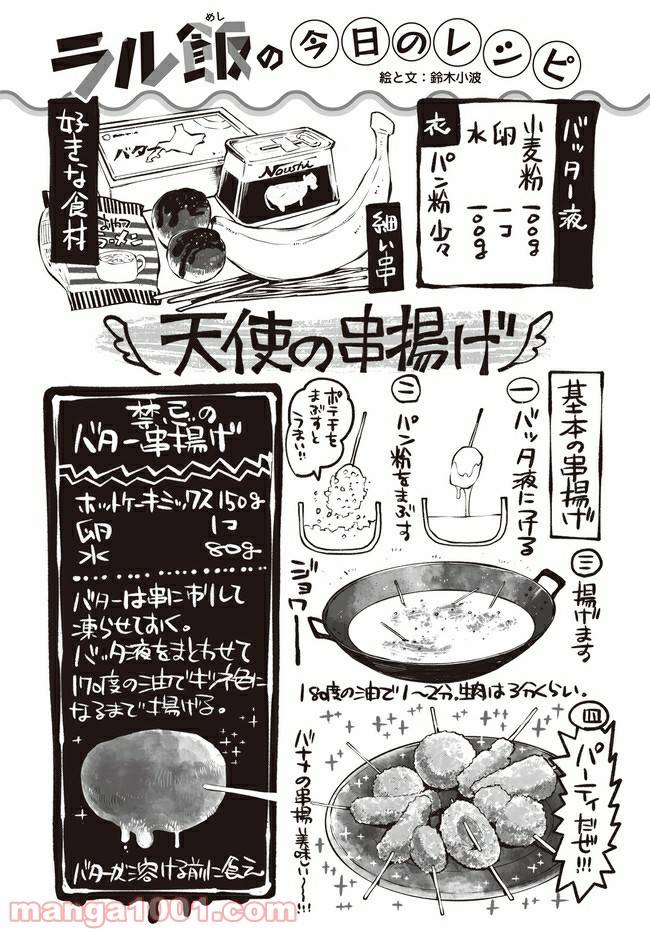 ラル飯の今日のレシピ
めし
絵と文：鈴木小波
バッター液
小麦粉 100g
卵 1コ
水 100g
衣 パン粉 少々
好きな食材
バター
Noushi
おやつ
ラーメン
細い串
天使の串揚げ
基本の串揚げ
一 バッタ液につける
二 パン粉をまぶす
ポテチを
まぶすと
うまい!!
三 揚げます
ジョワー
180度の油で1〜2分、生肉は3分くらい。
四 パーティだぜ!!!
バナナの串揚げ美味い〜!!!
禁忌の
バター串揚げ
ホットケーキミックス150g
卵 1コ
水 80g
バターは串に刺して
凍らせておく。
バッタ液をまとわせて
170度の油でキツネ色に
なるまで揚げる。
バターが溶ける前に食え
manga1001.com